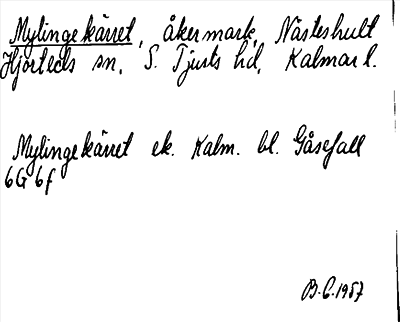 Mylingekärret, åkermark, Nästeshult
Hjorteds sn, S. Tjusts hd, Kalmar l.
Mylingekärret ek. Kalm. bl. Gåsefall
6G 6f
B.C. 1957